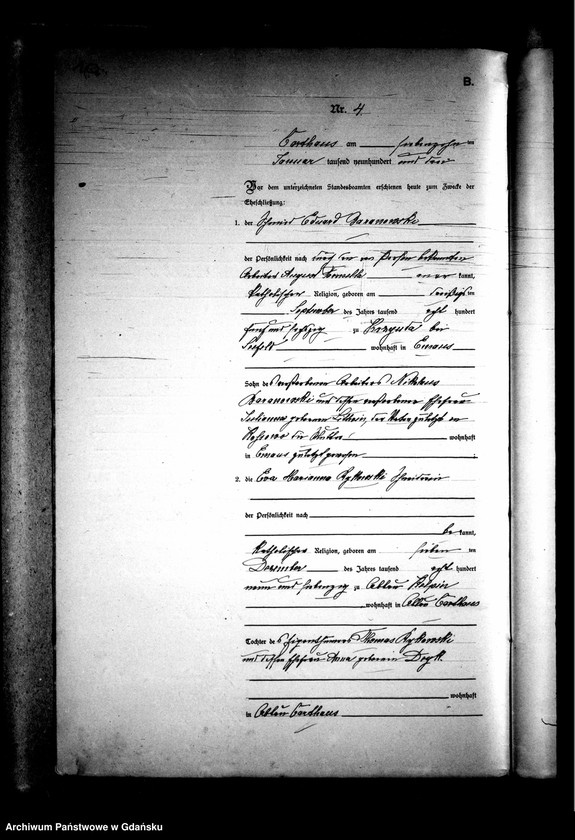 B.
Nr. 4
Carthaus am siebenzehn ten
Januar tausend neunhundert und drei
Vor dem unterzeichneten Standesbeamten erschienen heute zum Zwecke der
Eheschließung:
1. der Schmied Eduard Baranowski
der Persönlichkeit nach durch den von Person bekannten
Arbeiter August kannt,
katholischer Religion, geboren am dreißigs ten
September des Jahres tausend acht hundert
fünf und sechszig zu bei
Seefeld wohnhaft in Emaus
Sohn des verstorbenen Arbeiters Nikolaus
Baranowski und dessen verstorbene Ehefrau
geborenen der Vater zuletzt in
die Mutter wohnhaft
in Emaus zuletzt gewesen
2. die Eva Marianna Rytkowski
der Persönlichkeit nach
be kannt,
katholischer Religion, geboren am sieben ten
Dezember des Jahres tausend acht hundert
neun und siebenzig zu Abbau
wohnhaft in Abbau Carthaus
Tochter des Eigenthümers Thomas Rytkowski
und dessen Ehefrau Anna geborenen
wohnhaft
in Abbau Carthaus
Archiwum Państwowe w Gdańsku